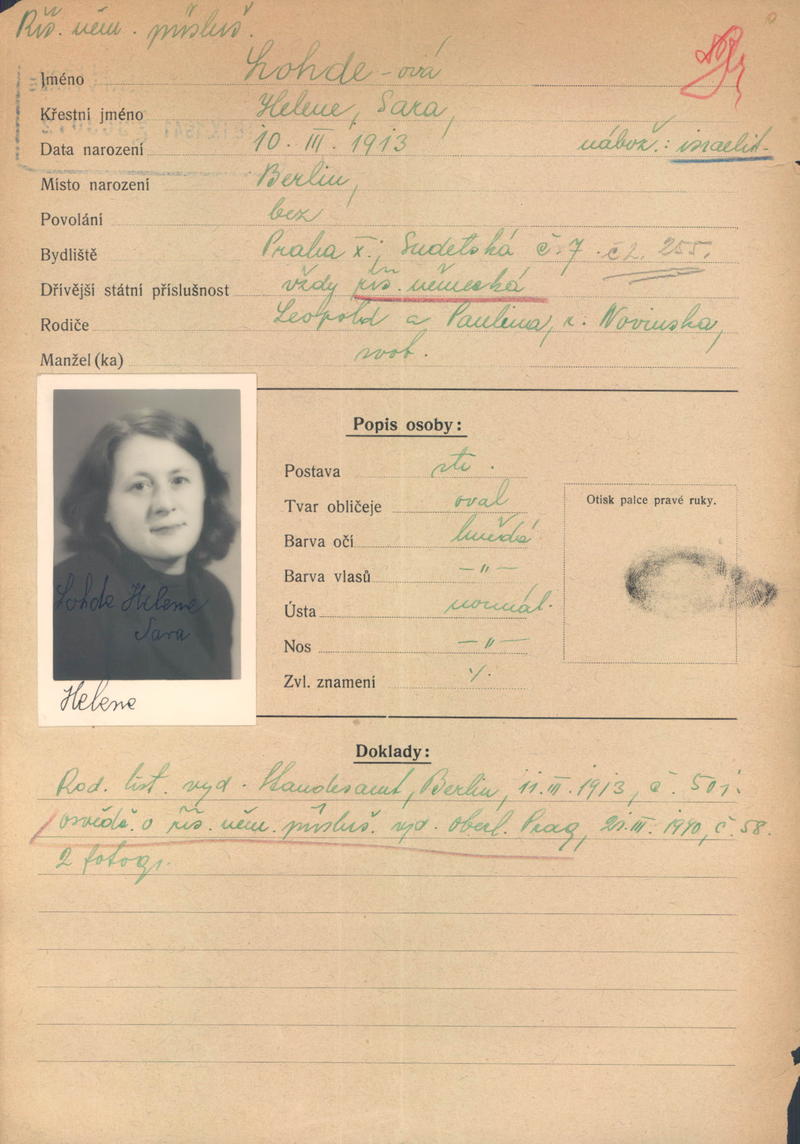 Říš. něm. přísluš.
Jméno Lohde-ová
Křestní jméno Helene, Sara,
Data narození 10. III. 1913 nábož.: israelit.
Místo narození Berlin,
Povolání bez
Bydliště Praha X., Sudetská č. 7. čp. 255.
Dřívější státní příslušnost vždy říš. německá
Rodiče Leopold a Paulina, r. Novinska,
Manžel (ka) svob.
Popis osoby:
Postava stř.
Tvar obličeje oval
Otisk palce pravé ruky.
Barva očí hnědá
Barva vlasů —"—
Ústa normál.
Nos —"—
Zvl. znamení ·/·
Lohde Helene
Sara
Helene
Doklady:
Rod. list. vyd. Standesamt, Berlin, 11. III. 1913, č. 501.
osvědč. o říš. něm. přísluš. vyd. oberl. Prag, 21. III. 1940, č. 58.
2 fotogr.